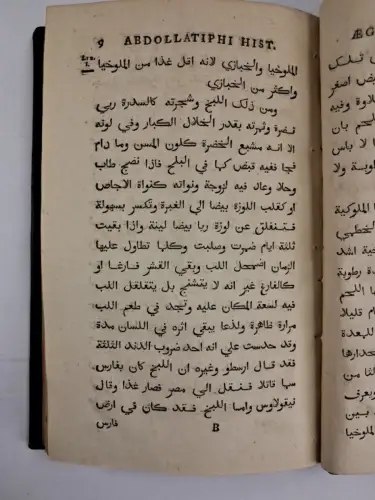 9 ABDOLLATIPHI HIST.
Lib. I.
الملوخيا والخبازي لانه اقل غذا من الملوخيا
واكثر من الخبازي
ومن ذلك اللبخ وشجرته كالسدرة ربي
نضرة وثمرته بقدر الخلال الكبار وفي لونه
الا انه مشبع الخضرة كلون المسن وما دام
فجا ففيه قبض كما في البلح فاذا نضج طاب
وحلا وعاد فيه لزوجة ونواته كنواة الاجاص
او كقلب اللوزة بيضا الي الغبرة وتكسر بسهولة
فتنفلق عن لوزة ريا بيضا لينة واذا بقيت
ثلثة ايام ضمرت وصلبت وكلما تطاول عليها
الزمان اضمحل اللب وبقي القشر فارغا او
كالفارغ غير انه لا يتشنج بل يتقلقل اللب
فيه لسعة المكان عليه وتجد في طعم اللب
مرارة ظاهرة ولذعا يبقي اثره في اللسان مدة
وقد حدست علي انه احد ضروب الدند الثلثة
فقد قال ارسطو وغيره ان اللبخ كان بفارس
سما قاتلا فنقل الي مصر فصار غذا وقال
نيقولاوس واما اللبخ فقد كان في ارض
B فارس
ÆG